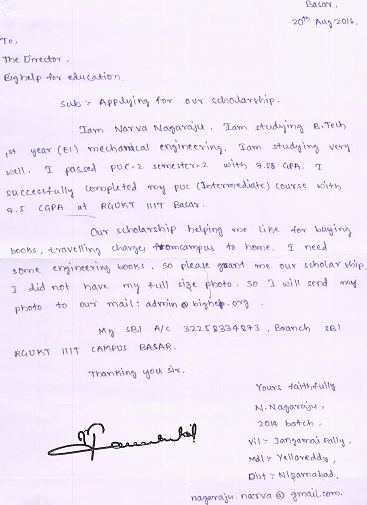 Basar,
20th Aug 2016.
To,
The Director,
Bighelp for education.
Sub :- Applying for our scholarship.
Iam Narva Nagaraju. Iam studying B.Tech
1st year (E1) mechanical engineering. Iam studying very
well. I passed PUC-2 semester-2 with 7.08 GPA. I
successfully completed my puc (Intermediate) course with
9.5 CGPA at RGUKT IIIT Basar.
Our scholarship helping me like for buying
books, travelling charges fromcampus to home. I need
some engineering books. so please grant me our scholarship.
I did not have my full size photo. so I will send my
photo to our mail: admin@bighep.org.
My SBI A/c 32258334873. Branch SBI
RGUKT IIIT CAMPUS BASAR.
Thanking you sir.
Yours faithfully
N. Nagaraju,
2014 batch,
Vil :- Jangamai Pally,
Mdl :- Yellareddy,
Dist :- Nizamabad,
nagaraju.narva@gmail.com.